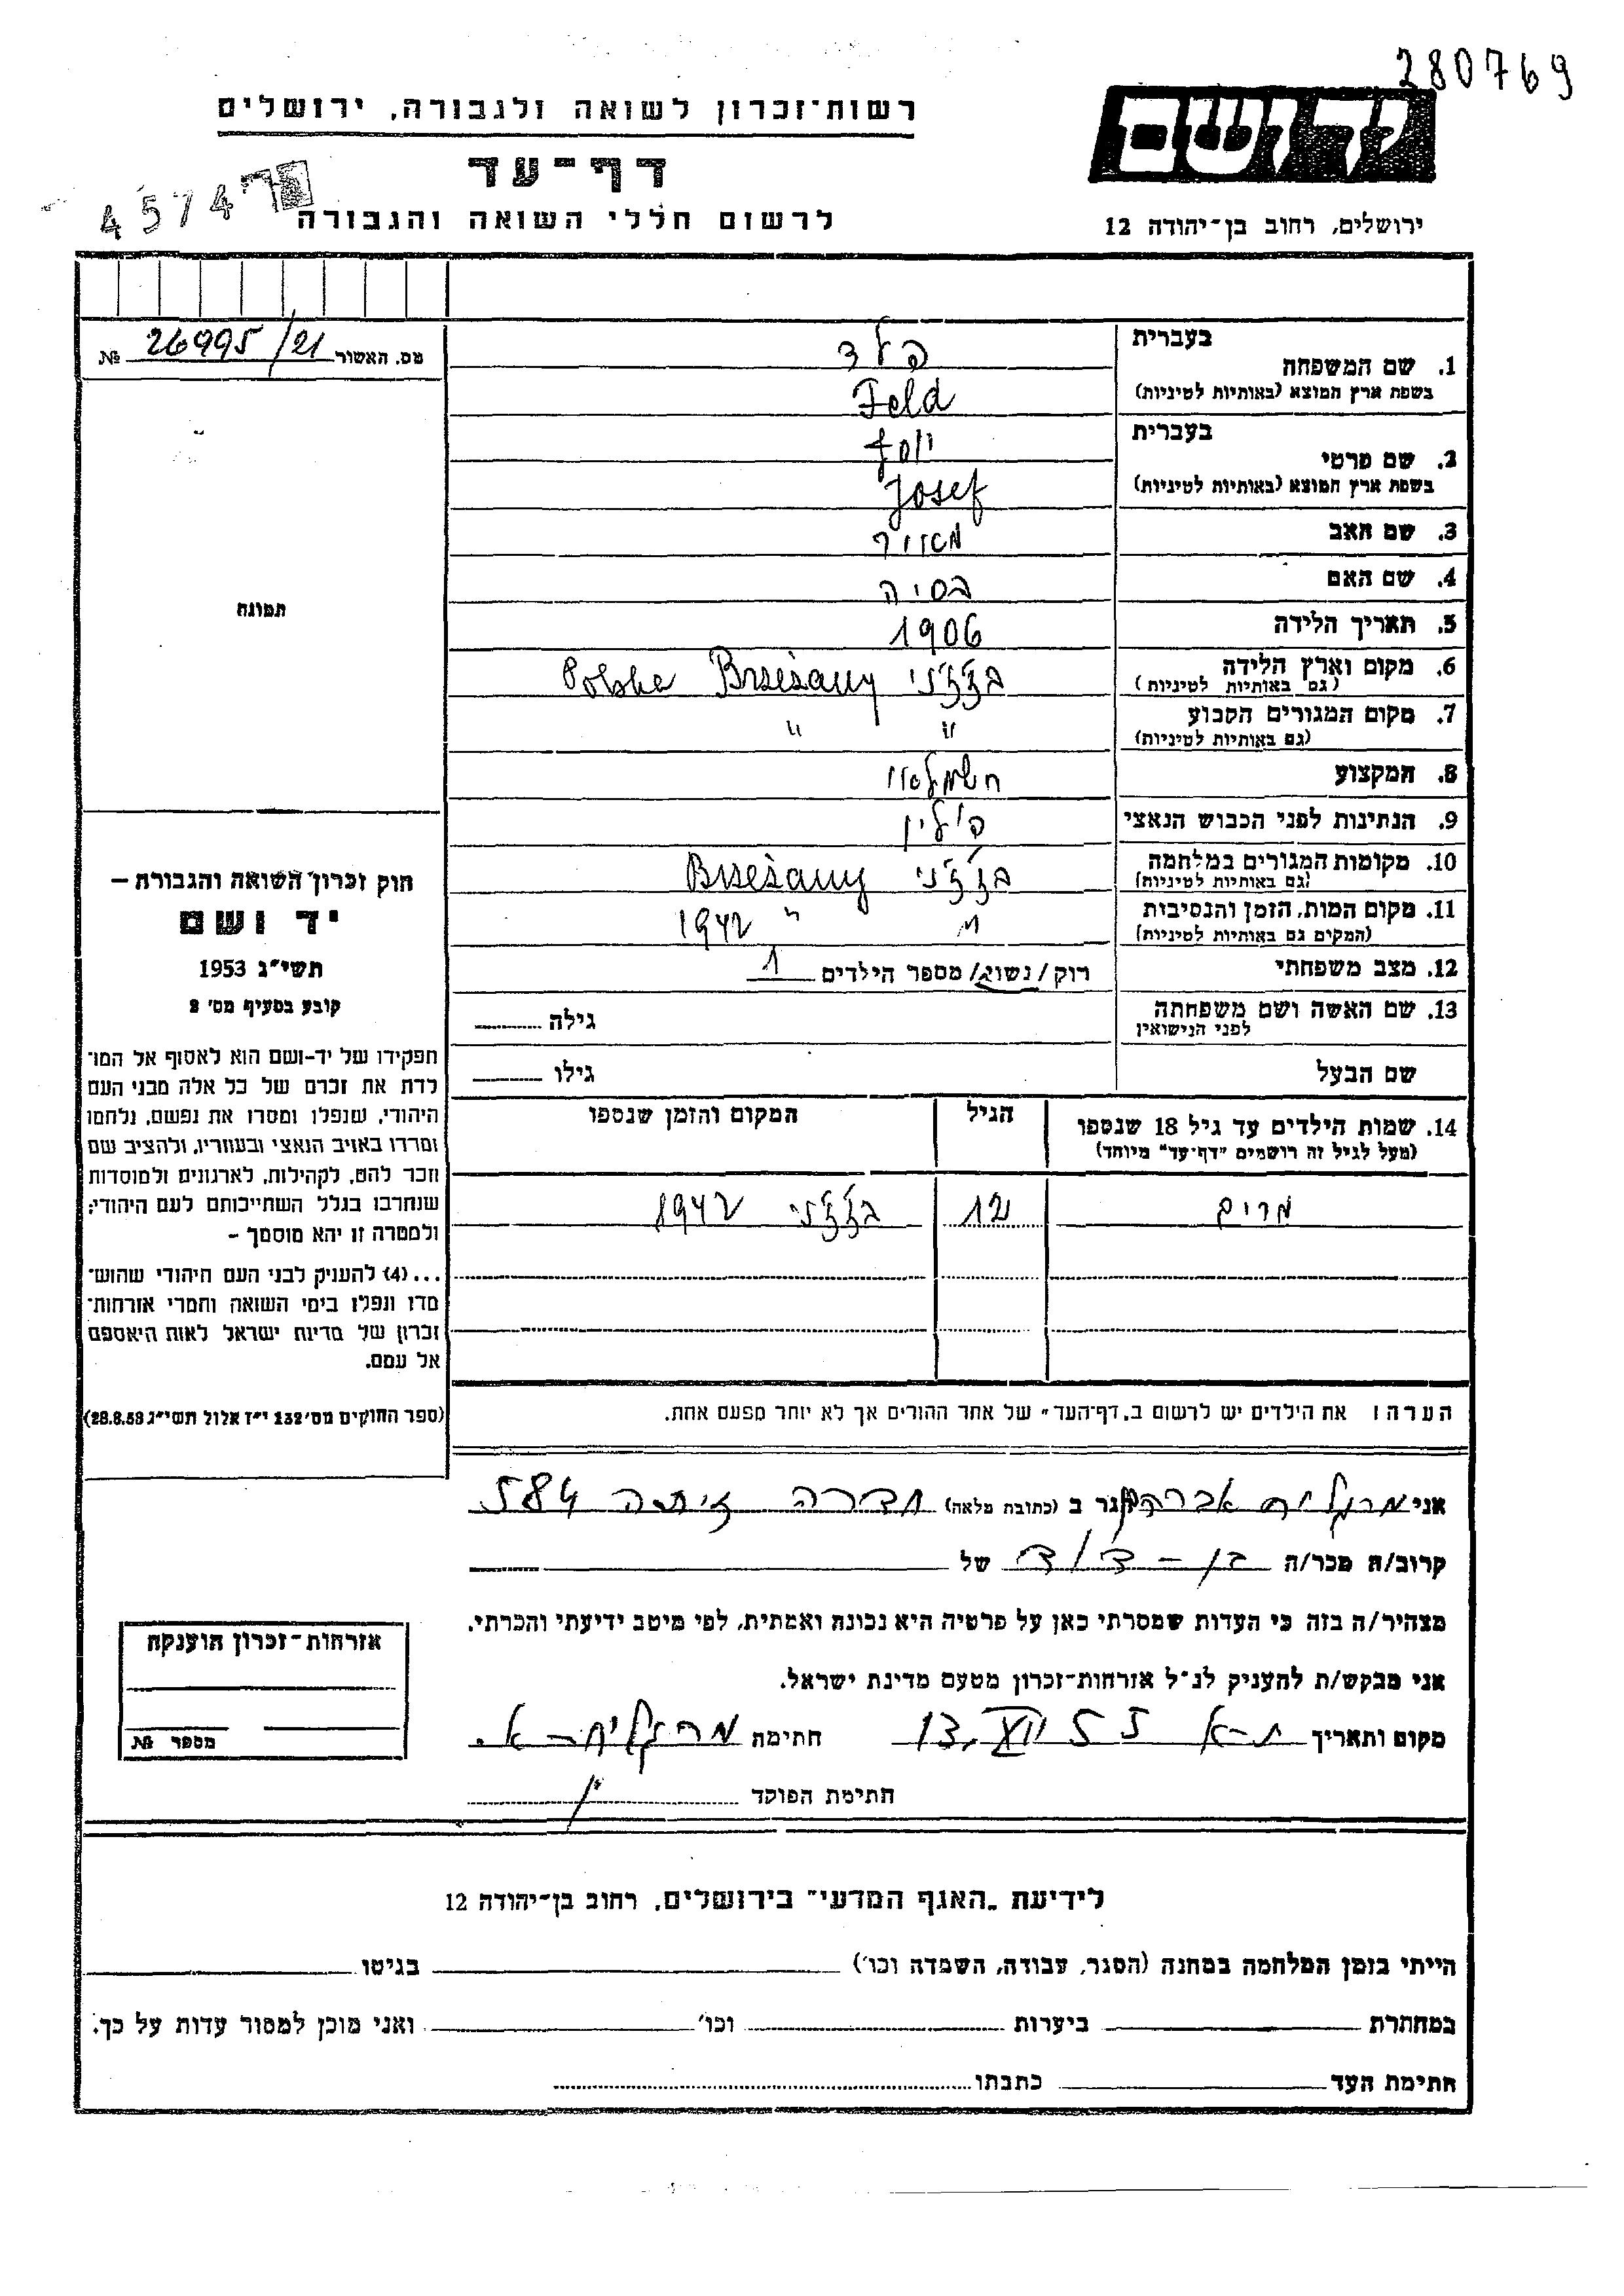 280769
יד ושם
רשות-זכרון לשואה ולגבורה, ירושלים
דף-עד
לרשום חללי השואה והגבורה
4574
ירושלים, רחוב בן-יהודה 12
מס. האשור 26995/21 №
תמונה
חוק זכרון השואה והגבורה –
יד ושם
תשי"ג 1953
קובע בסעיף מס' 2
תפקידו של יד-ושם הוא לאסוף אל המו־
לדת את זכרם של כל אלה מבני העם
היהודי, שנפלו ומסרו את נפשם, נלחמו
ומרדו באויב הנאצי ובעוזריו, ולהציב שם
וזכר להם, לקהילות, לארגונים ולמוסדות
שנחרבו בגלל השתייכותם לעם היהודי;
ולמטרה זו יהא מוסמך –
...(4) להעניק לבני העם היהודי שהוש־
מדו ונפלו בימי השואה והמרי אזרחות־
זכרון של מדינת ישראל לאות היאספם
אל עמם.
(ספר החוקים מס' 132 י"ז אלול תשי"ג 28.8.53)
בעברית
1. שם המשפחה פלד
בשפת ארץ המוצא (באותיות לטיניות) Feld
בעברית
2. שם פרטי יוסף
בשפת ארץ המוצא (באותיות לטיניות) Josef
3. שם האב
4. שם האם בסיה
5. תאריך הלידה 1906
6. מקום וארץ הלידה ברז'ני Brzeżany Polska
(גם באותיות לטיניות)
7. מקום המגורים הקבוע " "
(גם באותיות לטיניות)
8. המקצוע חשמלאי
9. הנתינות לפני הכבוש הנאצי פולין
10. מקומות המגורים במלחמה ברז'ני Brzeżany
(גם באותיות לטיניות)
11. מקום המות, הזמן והנסיבות " " 1942
(המקום גם באותיות לטיניות)
12. מצב משפחתי רוק/נשוי/ מספר הילדים 1
13. שם האשה ושם משפחתה גילה
לפני הנישואין
שם הבעל גילו
14. שמות הילדים עד גיל 18 שנספו הגיל המקום והזמן שנספו
(מעל לגיל זה רושמים "דף-עד" מיוחד)
מרים 12 ברז'ני 1942
הערה: את הילדים יש לרשום ב"דף-העד" של אחד ההורים אך לא יותר מפעם אחת.
אני מרגליות אברהם הגר ב (כתובת מלאה) חדרה 584
קרוב/ה מכר/ה בן-דוד של
מצהיר/ה בזה כי העדות שמסרתי כאן על פרטיה היא נכונה ואמתית, לפי מיטב ידיעתי והכרתי.
אני מבקש/ת להעניק לנ"ל אזרחות-זכרון מטעם מדינת ישראל.
מקום ותאריך ת-א חתימה
חתימת הפוקד
אזרחות-זכרון הוענקה
מספר №
לידיעת "האגף המדעי" בירושלים, רחוב בן-יהודה 12
הייתי בזמן המלחמה במחנה (הסגר, עבודה, השמדה וכו') בגיטו
במחתרת ביערות וכו' ואני מוכן למסור עדות על כך.
חתימת העד כתבתו